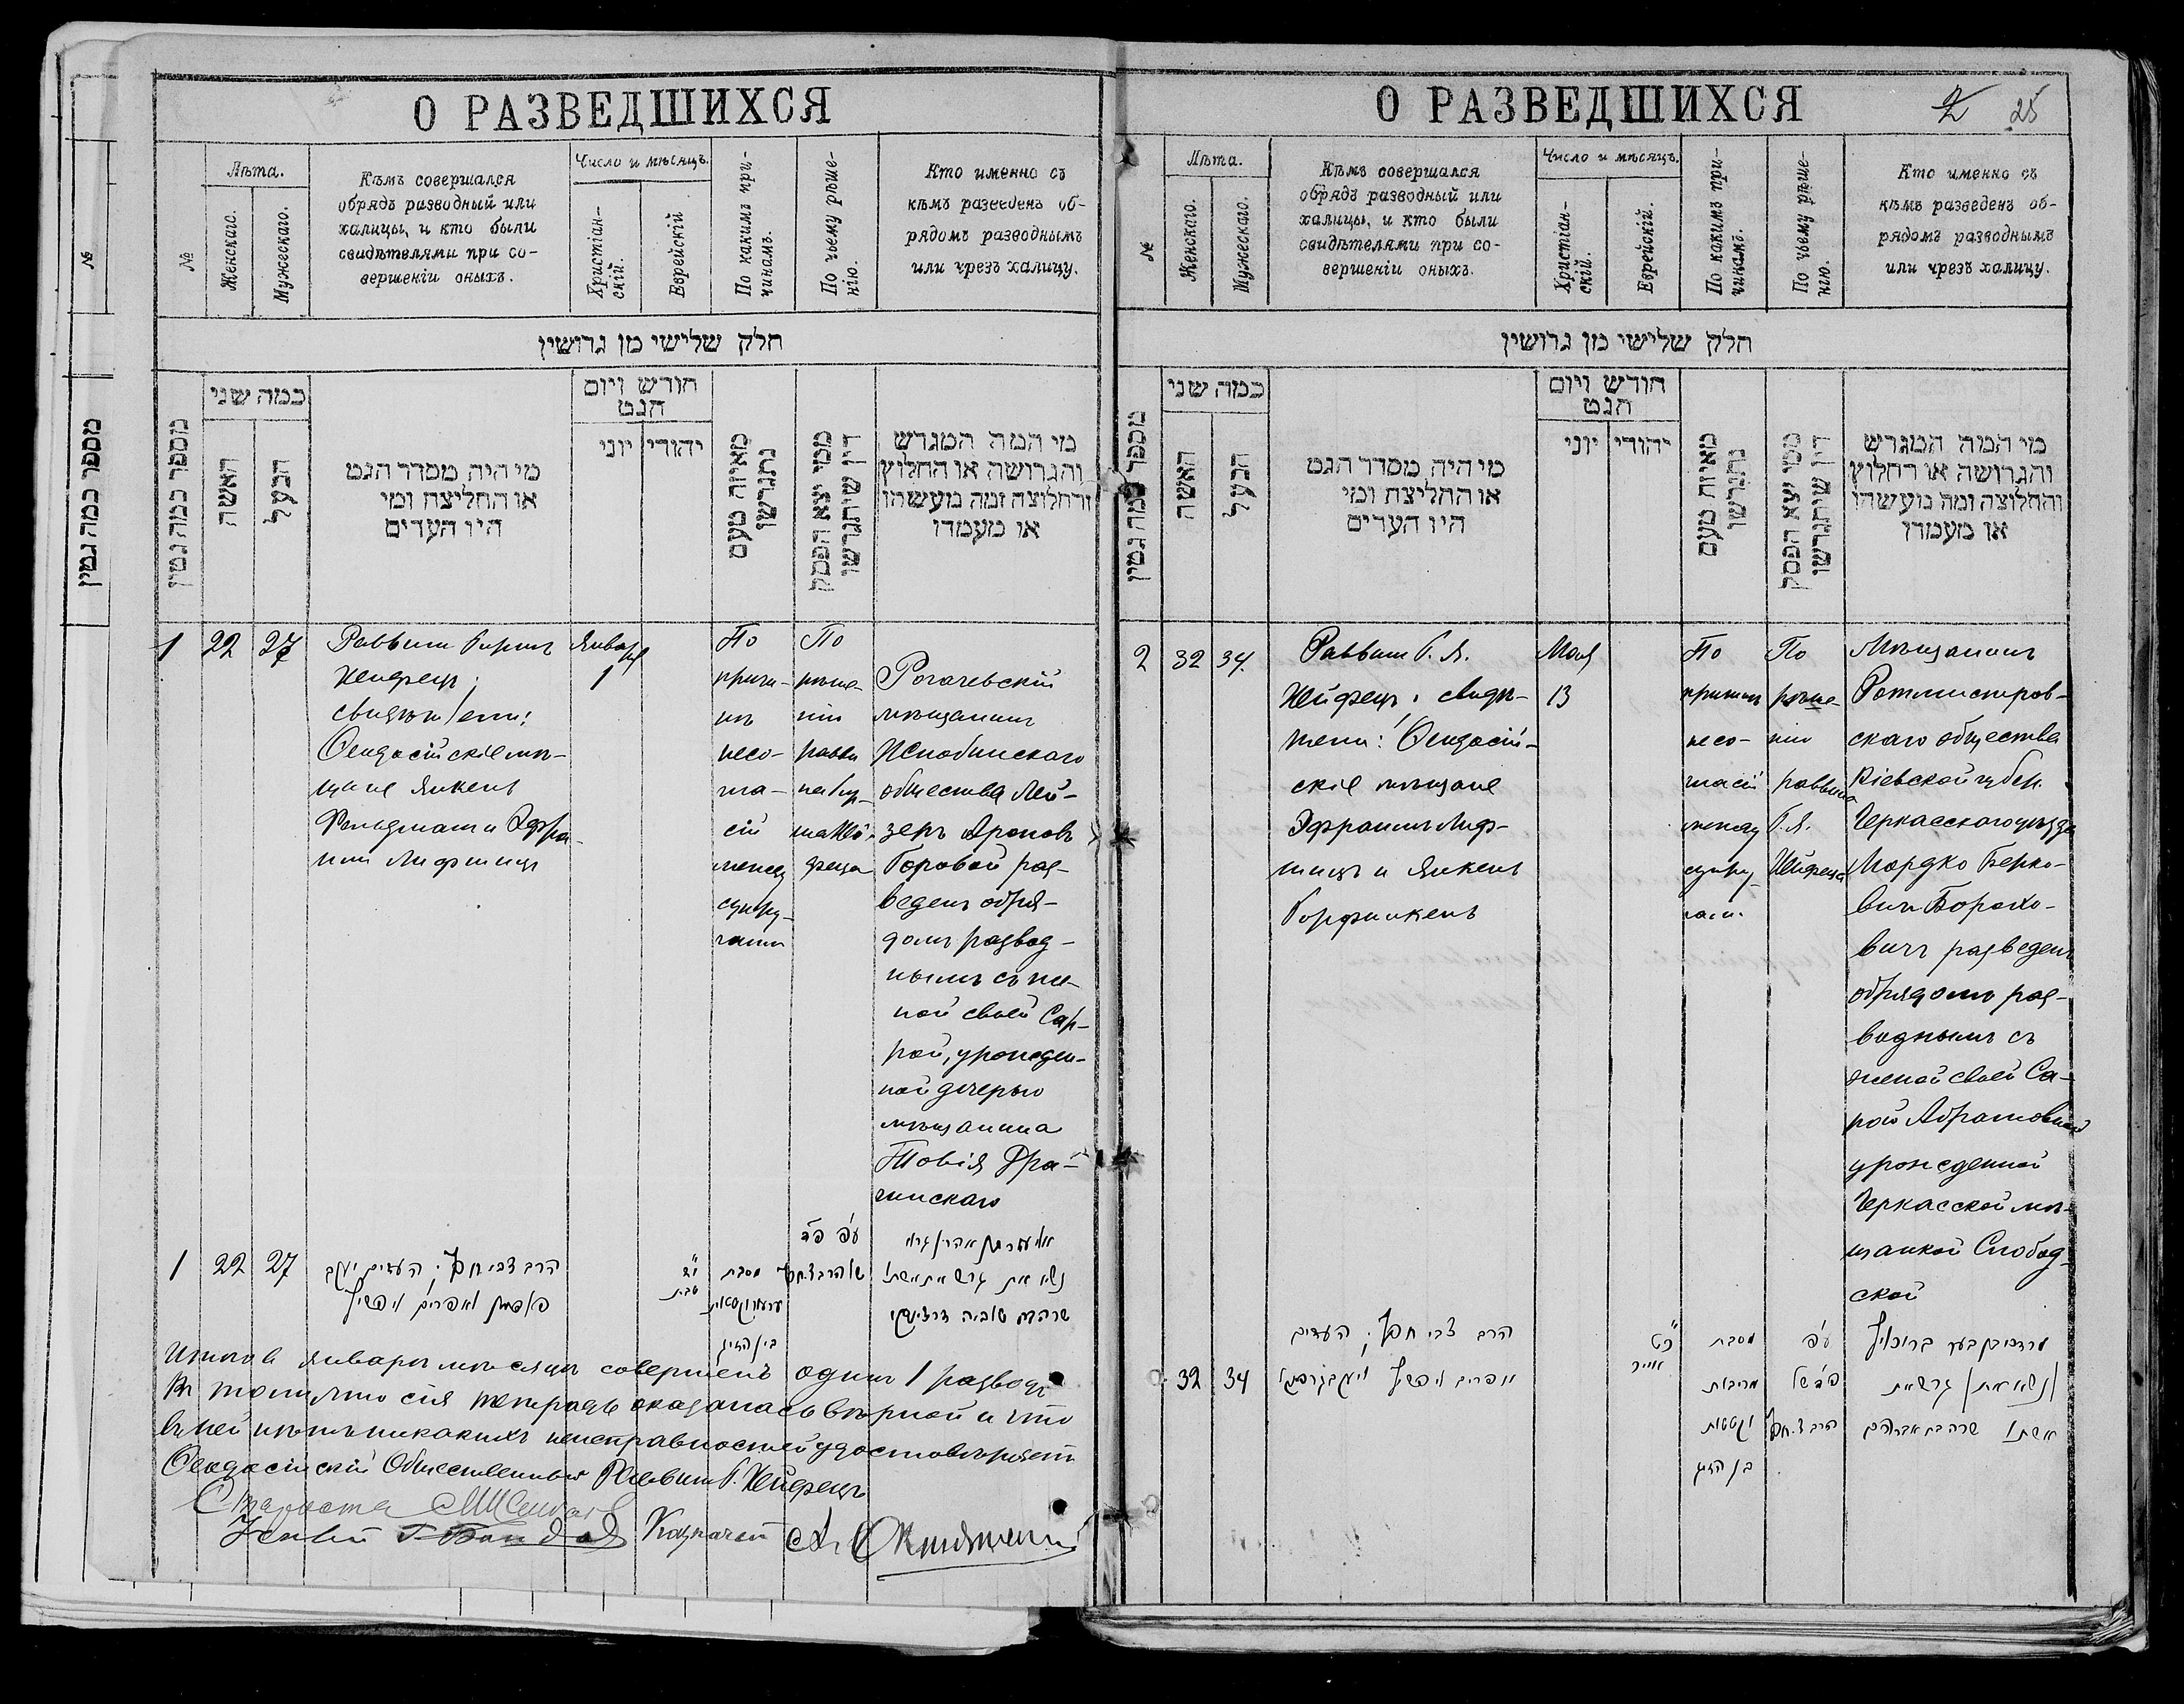 О РАЗВЕДШИХСЯ
№
№
Лѣта.
Женскаго.
Мужескаго.
Кѣмъ совершался
обрядъ разводный или
халицы, и кто были
свидѣтелями при со-
вершеніи оныхъ.
Число и мѣсяцъ.
Христіан-
скій.
Еврейскій
По какимъ при-
чинамъ.
По чьему рѣше-
нію.
Кто именно съ
кѣмъ разведенъ об-
рядомъ разводнымъ
или чрезъ халицу.
חלק שלישי מן גרושין
מספר כמה גטין
מספר כמה גטין
כמה שני
האשה
הבעל
מי היה מסדר הגט
או החליצה ומי
היו העדים
חודש ויום
הגט
יוני
יהודי
מאיזה טעם
נתגרשו
ממי יצא הפסק
דין שיתגרשו
מי המה המגרש
והגרושה או החלוץ
והחלוצה ומה מעשהו
או מעמדו
1
22
27
Раввинъ
Хейфецъ;
свидѣтели:
Ѳеодосійскіе мѣ-
щане Янкель
Фельдманъ и Эфра-
имъ Лифшицъ
Января
1
По
причи-
нѣ
несо-
гла-
сій
между
супру-
гами
По
рѣше-
нію
равви-
на
Хей-
феца
Рогачевскій
мѣщанинъ
общества Лей-
зеръ Ароновъ
Боровой раз-
веденъ обря-
домъ развод-
нымъ съ же-
ной своей Сар-
рой, урожден-
ной дочерью
мѣщанина
Товія Дра-
жинскаго
1
22
27
הרב צבי חפץ; העדים יעקב
פעלדמן ואפרים ליפשיץ
י"ד
טבת
מסבת
בין הזוג
ע"פ פ"ד
של הרב צ. חפץ
נשיא את גרש את אשתו
שרה בת טוביה
Итого въ январѣ мѣсяцѣ совершенъ одинъ 1 разводъ
Въ томъ, что сія тетрадь оказалась вѣрной и что
въ ней нѣтъ никакихъ неисправностей удостовѣряетъ
Ѳеодосійскій Общественный Раввинъ Хейфецъ
Староста
Казначей
О РАЗВЕДШИХСЯ
2 25
№
Лѣта.
Женскаго.
Мужескаго.
Кѣмъ совершался
обрядъ разводный или
халицы, и кто были
свидѣтелями при со-
вершеніи оныхъ.
Число и мѣсяцъ.
Христіан-
скій.
Еврейскій.
По какимъ при-
чинамъ.
По чьему рѣше-
нію.
Кто именно съ
кѣмъ разведенъ об-
рядомъ разводнымъ
или чрезъ халицу.
חלק שלישי מן גרושין
מספר כמה גטין
כמה שני
האשה
הבעל
מי היה מסדר הגט
או החליצה ומי
היו העדים
חודש ויום
הגט
יוני
יהודי
מאיזה טעם
נתגרשו
ממי יצא הפסק
דין שיתגרשו
מי המה המגרש
והגרושה או החלוץ
והחלוצה ומה מעשהו
או מעמדו
2
32
34.
Раввинъ Г. Я.
Хейфецъ; свидѣ-
тели: Ѳеодосій-
скіе мѣщане
Эфраимъ Лиф-
шицъ и Янкель
Гарфинкель
Мая
13
По
причинѣ
несо-
гласій
между
супру-
гами.
По
рѣше-
нію
раввина
Г. Я.
Хейфеца
Мѣщанинъ
Ротмистров-
скаго общества
Кіевской губерн.
Черкасскаго уѣзда
Мордко Берко-
вичъ Борохо-
вичъ разведенъ
обрядомъ раз-
воднымъ съ
женой своей Са-
рой Абрамовной
урожденной
Черкасской мѣ-
щанкой Слобод-
ской
32
34
הרב צבי חפץ; העדים
אפרים ליפשיץ ויעקב גרפינקל
כ"ט
אייר
מסבת
מריבות
וקטטות
בין הזוג
ע"פ
פ"ד של
הרב צ. חפץ
גרש את
אשתו שרה בת אברהם